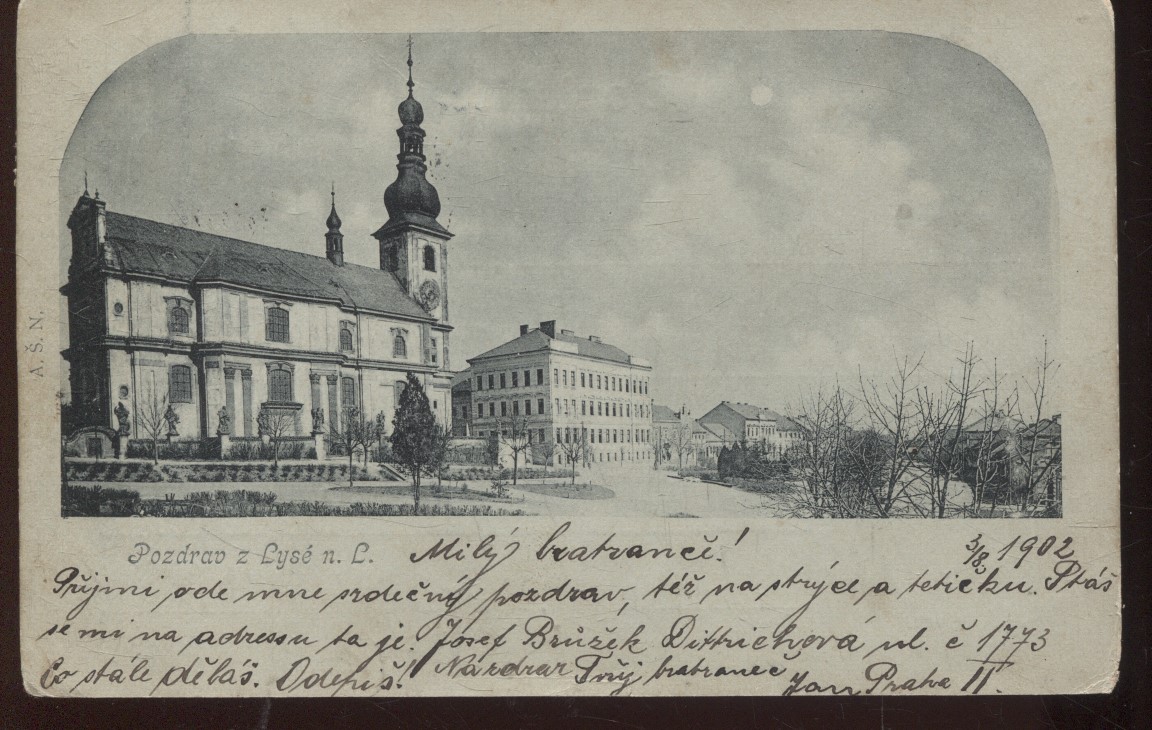 A. Š. N.
Pozdrav z Lysé n. L. Milý bratranče! 3/8 1902
Přijmi ode mne srdečný pozdrav, též na strýce a tetičku. Ptáš
se mi na adressu ta je. Josef Brůžek Dittrichová ul. č 1773
Co stále děláš. Odepiš! Nazdrar Tvůj bratraneč
Jan Praha II.